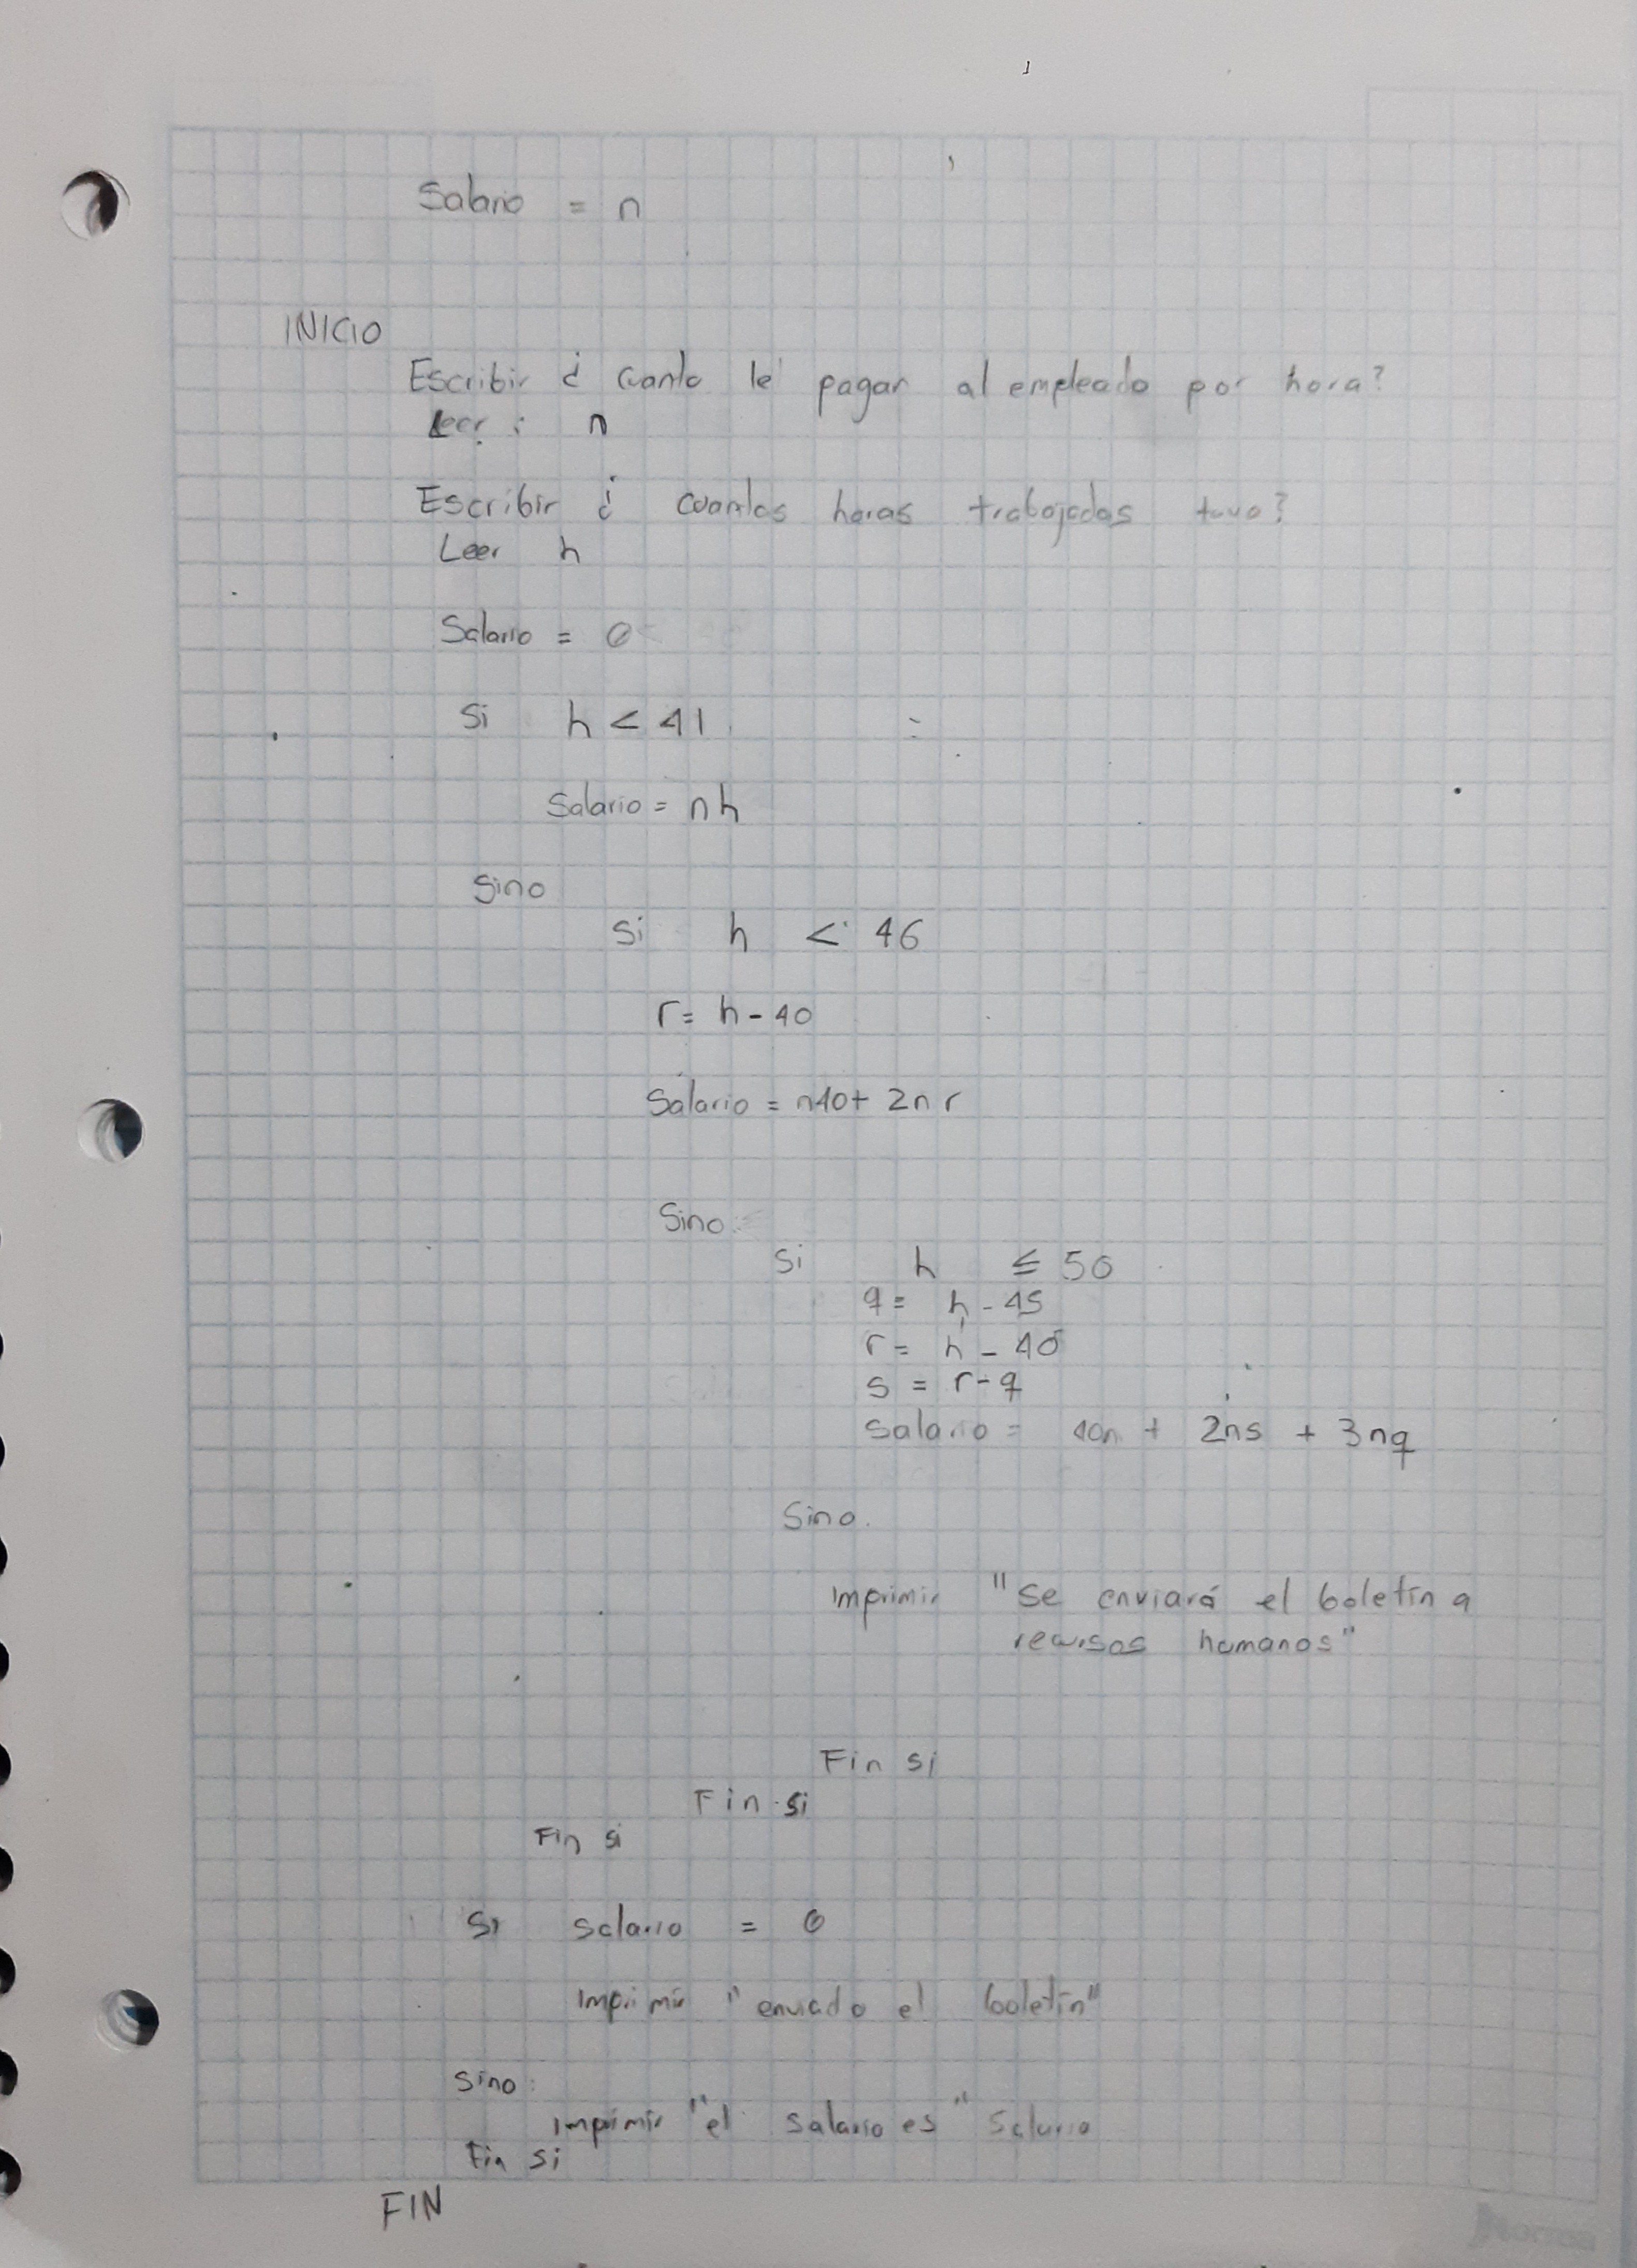 Salario = n
INICIO
Escribir ¿ cuanto le pagar al empleado por hora?
Leer : n
Escribir ¿ cuantas horas trabajadas tuvo?
Leer h
Salario = 0
Si h < 41
Salario = nh
Sino
Si h < 46
r = h - 40
Salario = n40 + 2nr
Sino
Si h ≤ 50
q = h - 45
r = h - 40
s = r - q
Salario = 40n + 2ns + 3nq
Sino.
Imprimir "Se enviará el boletín a
recursos humanos"
Fin si
Fin si
Fin si
Si salario = 0
Imprimir "enviado el boletín"
Sino:
Imprimir "el salario es" Salario
Fin si
FIN